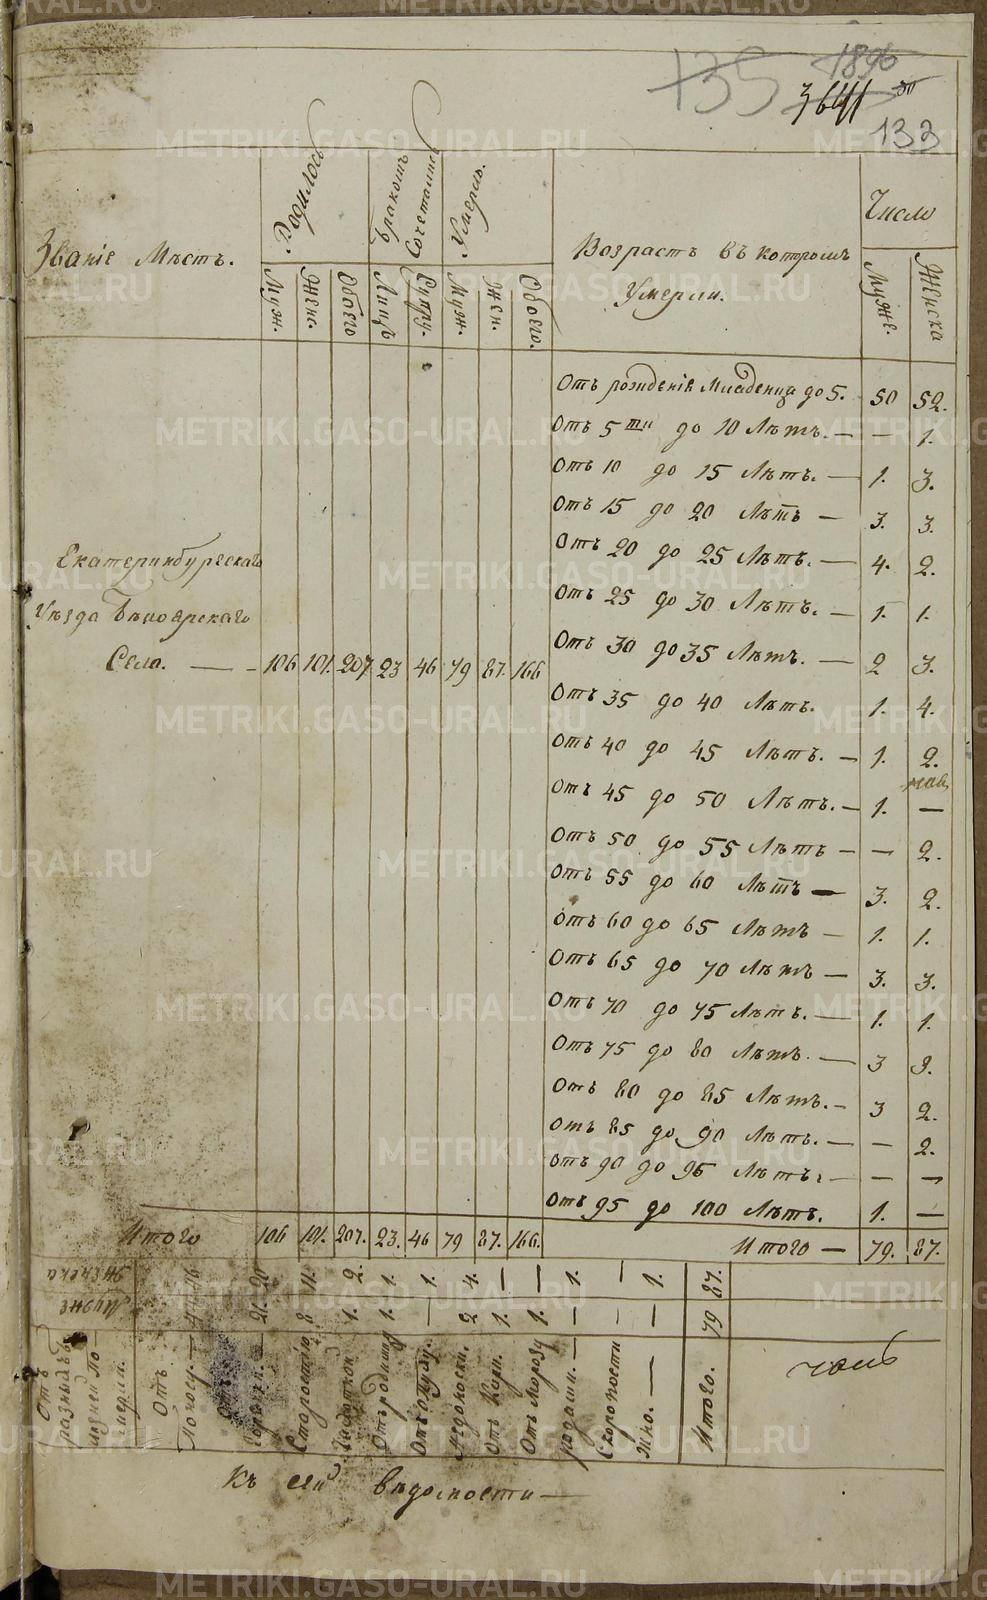 135 1896
3641
133
Званіе Мѣстъ.
Родилось
Бракомъ Сочеталис
Умерло.
Возрастъ въ которомъ
Умерли.
Число
Муж.
Жен.
Обоего
Лицъ
Супру.
Муж.
Жен.
Обоего.
Муже.
Женска
Отъ рожденія Младенца до 5. 50 52.
Отъ 5ти до 10 Лѣтъ. — — 1.
Отъ 10 до 15 Лѣтъ. — 1. 3.
Отъ 15 до 20 Лѣтъ — 3. 3.
Отъ 20 до 25 Лѣтъ. — 4. 2.
Отъ 25 до 30 Лѣтъ. — 1. 1.
Отъ 30 до 35 Лѣтъ. — 2 3.
Отъ 35 до 40 Лѣтъ. 1. 4.
Отъ 40 до 45 Лѣтъ. — 1. 2.
Отъ 45 до 50 Лѣтъ. — 1. —
Отъ 50 до 55 Лѣтъ — — 2.
Отъ 55 до 60 Лѣтъ — 3. 2.
Отъ 60 до 65 Лѣтъ — 1. 1.
Отъ 65 до 70 Лѣтъ — 3. 3.
Отъ 70 до 75 Лѣтъ. — 1. 1.
Отъ 75 до 80 Лѣтъ. — 3 3.
Отъ 80 до 85 Лѣтъ. — 3 2.
Отъ 85 до 90 Лѣтъ. — — 2.
Отъ 90 до 95 Лѣтъ. — — —
Отъ 95 до 100 Лѣтъ. 1. —
Екатеринбургскаго
Уѣзда Бѣлоярскаго
Села. — 106 101. 207 23 46 79 87. 166
Итого 106 101. 207. 23. 46 79 87. 166. Итого — 79. 87.
Женска 20 11. 2. 1. 1. 4. — — 1. — 1. 87.
Мужс 21. 8 1. 1. — 2 1. 1. — — — 79
Отъ разныхъ
Отъ Поносу. —
Отъ горячк. —
Старостію
Чахоткой
Отъ родимцу
Отъ опуху.
Отъ Кори.
Отъ Морозу
родами. —
Скоропости
жно. —
Итого.
Къ сей вѣдомости —
METRIKI.GASO-URAL.RU